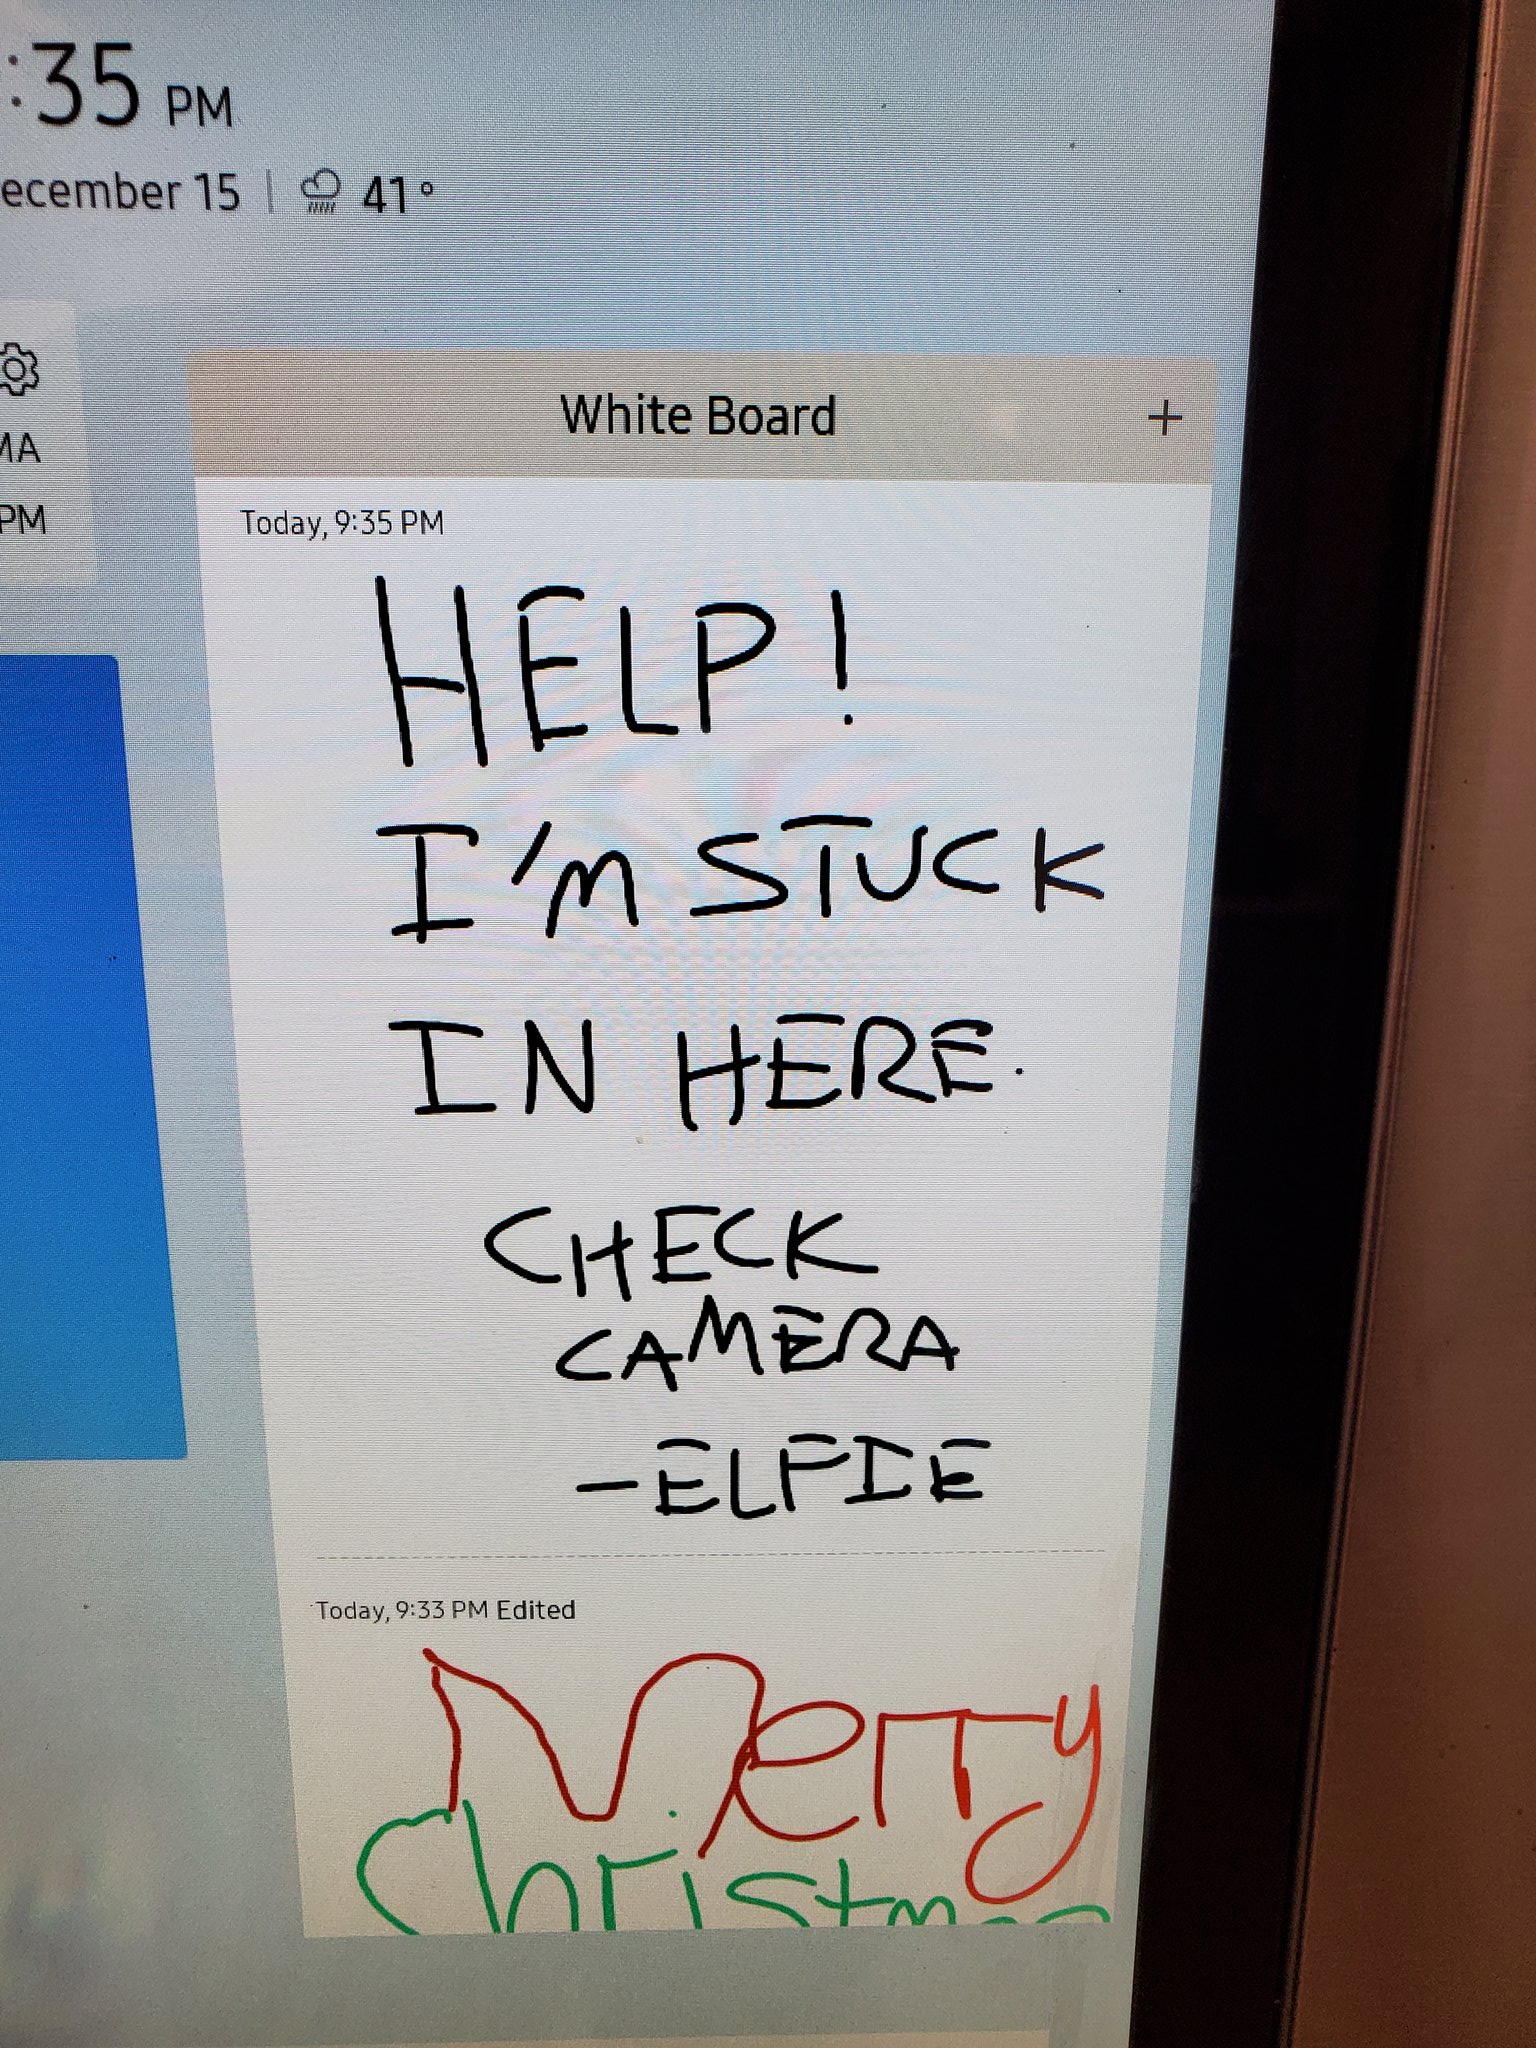 :35 PM
ecember 15 | 41°
MA
PM
White Board +
Today, 9:35 PM
HELP!
I'M STUCK
IN HERE.
CHECK
CAMERA
-ELFIE
Today, 9:33 PM Edited
Merry
Christmas